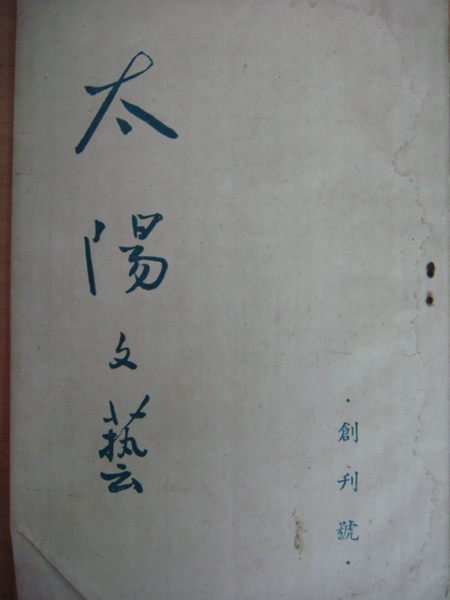 太陽文藝
·創刊號·